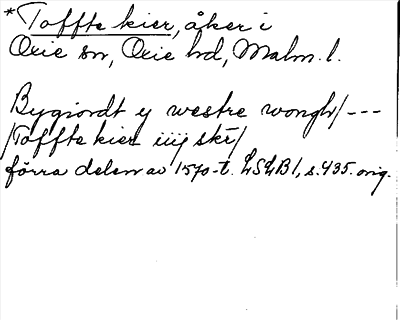 *Toffte kier, åker i
Oxie sn, Oxie hd, Malm. l.
Bygiordt y westre wongh/---
/Toffte kier iiij skr/
förra delen av 1570-t. LSLB1, s. 435. orig.